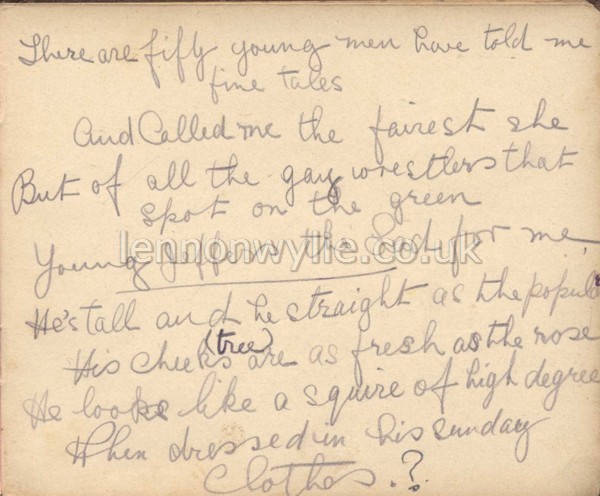 There are fifty young men have told me
fine tales
And Called me the fairest she
But of all the gay wrestlers that
spot on the green
Young Jeffery's the lad for me
lennonwylie.co.uk
He's tall and he straight as the popula
(tree)
His cheeks are as fresh as the rose
He looks like a squire of high degree
When dressed in his sunday
Clothes.?